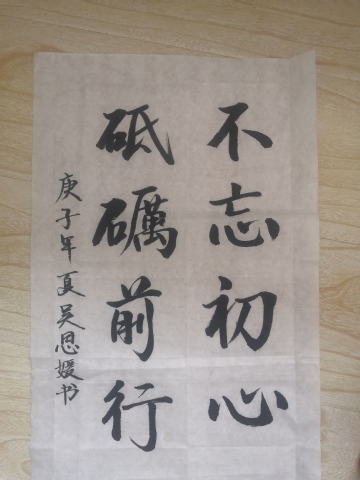 不忘初心
砥礪前行
庚子年夏吴思媛书